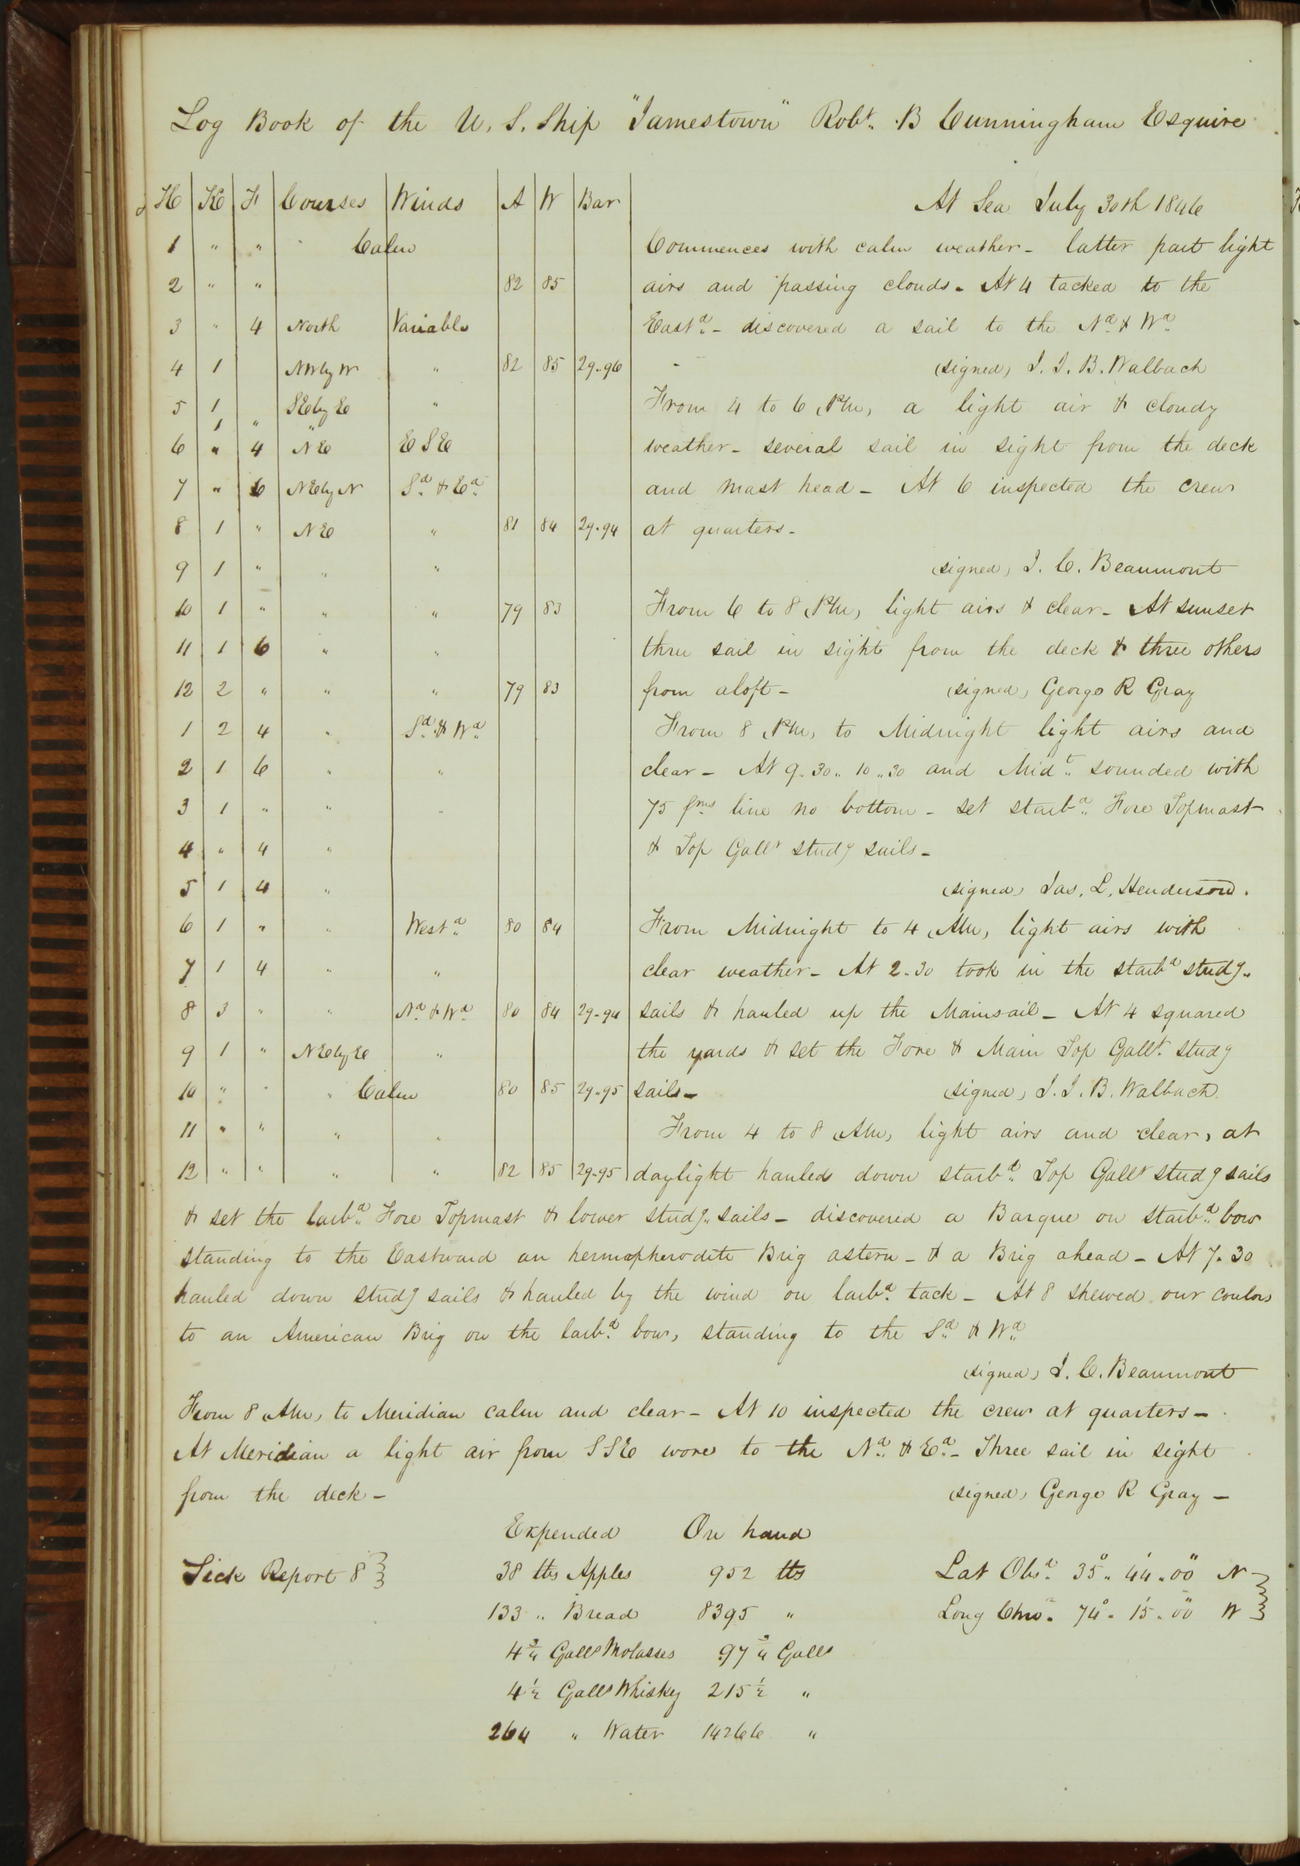 Log Book of the U. S. Ship "Jamestown" Robt. B Cunningham Esquire
H K F Courses Winds A W Bar At Sea July 30th 1846
1 " " " Calm Commences with calm weather - latter part light
2 " " 82 85 airs and passing clouds - At 4 tacked to the
3 " 4 North Variable Eastd - discovered a sail to the Nd & Wd
4 1 NW by W " 82 85 29-96 - (signed) J. J. B. Walbach
5 1 " SE by E " From 4 to 6 PM, a light air & cloudy
6 " 4 NE ESE weather - several sail in sight from the deck
7 " 6 NE by N Sd & Ed and mast head - At 6 inspected the crew
8 1 " NE " 81 84 29-94 at quarters -
9 1 " " " (signed) J. C. Beaumont
10 1 " " " 79 83 From 6 to 8 PM, light airs & clear - At sunset
11 1 6 " " three sail in sight from the deck & three others
12 2 " " " 79 83 from aloft - (signed) George R Gray
1 2 4 " Sd & Wd From 8 PM, to Midnight light airs and
2 1 6 " " clear - At 9.30 .. 10..30 and Midt sounded with
3 1 " " " 75 fms line no bottom - set starbd Fore Topmast
4 " 4 " & Top Gallt studg sails -
5 1 4 " (signed) Jas. L. Henderson.
6 1 " " Westd 80 84 From Midnight to 4 AM, light airs with
7 1 4 " " clear weather - At 2-30 took in the starbd studg.
8 3 " " Nd & Wd 80 84 29-94 sails & hauled up the Mainsail - At 4 squared
9 1 " NE by E " the yards & set the Fore & Main Top Gallt studg
10 " " " Calm 80 85 29-95 sails - (signed) J. J. B. Walbach.
11 " " " " From 4 to 8 AM, light airs and clear, at
12 " " " " 82 85 29-95 daylight hauled down starbd Top Gallt studg sails
& set the larbd Fore Topmast & lower studg. sails - discovered a Barque on starbd bow
standing to the Eastward an hermapherodite Brig astern - & a Brig ahead - At 7.30
hauled down studg sails & hauled by the wind on larbd tack - At 8 shewed our coulors
to an American Brig on the larbd bow, standing to the Sd & Wd
(signed) J. C. Beaumont
From 8 AM, to Meridian calm and clear - At 10 inspected the crew at quarters -
At Meridian a light air from SSE wore to the Nd & Ed - Three sail in sight
from the deck - (signed) George R Gray -
Expended On hand
Sick Report 8 38 lbs Apples 952 lbs Lat Obsd 35° 44' 00" N
133 " Bread 8395 " Long Chro. 74° 15' 00" W
4 3/4 Galls Molasses 97 3/4 Galls
4 1/2 Galls Whiskey 215 1/2 "
264 " Water 14266 "